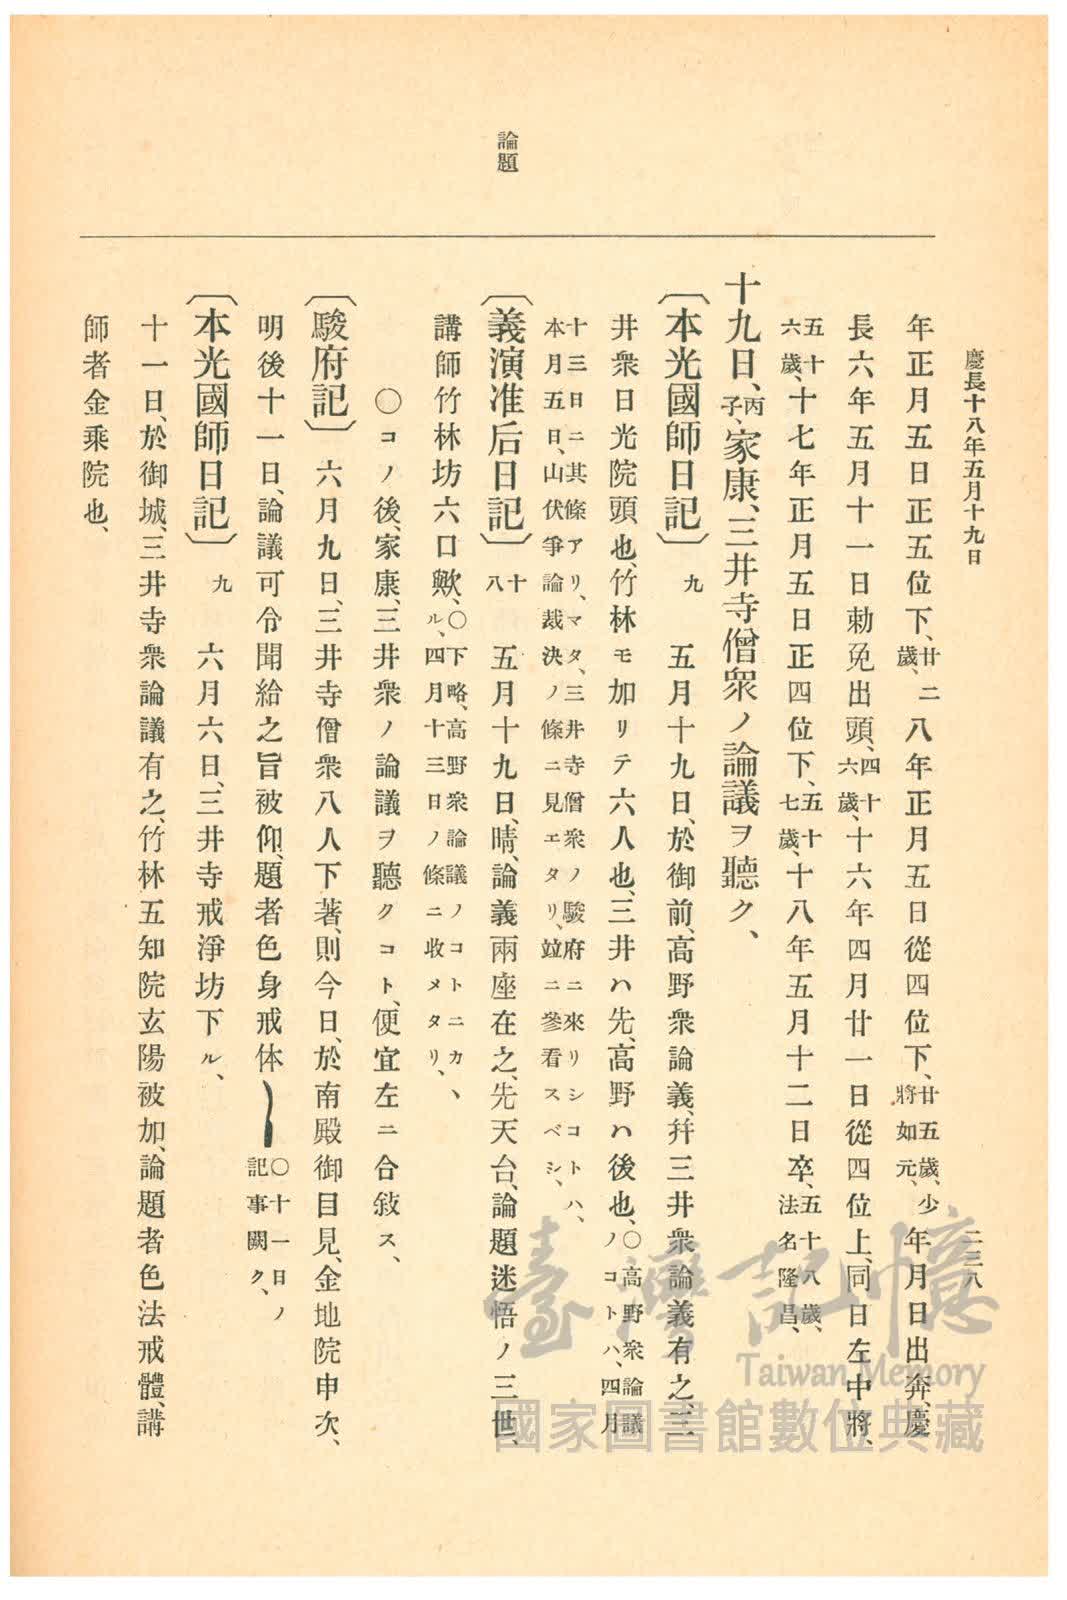 慶長十八年五月十九日
二三八
論題
年正月五日正五位下、廿二歲、八年正月五日從四位下、廿五歲、少將如元、年月日出奔、慶
長六年五月十一日勅免出頭、四十六歲、十六年四月廿一日從四位上、同日左中將、
五十六歲、十七年正月五日正四位下、五十七歲、十八年五月十二日卒、五十八歲、法名隆昌、
十九日、丙子、家康、三井寺僧衆ノ論議ヲ聽ク、
〔本光國師日記〕九 五月十九日、於御前、高野衆論義、幷三井衆論義有之、三
井衆日光院頭也、竹林モ加リテ六人也、三井ハ先、高野ハ後也、〇高野衆論議ノコトハ、四月
十三日ニ其條アリ、マタ、三井寺僧衆ノ駿府ニ來リシコトハ、
本月五日、山伏爭論裁決ノ條ニ見エタリ、竝ニ參看スベシ、
〔義演准后日記〕十八 五月十九日、晴、論義兩座在之、先天台、論題迷悟ノ三世、
講師竹林坊六口歟、〇下略、高野衆論議ノコトニカヽル、四月十三日ノ條ニ收メタリ、
〇コノ後、家康、三井衆ノ論議ヲ聽クコト、便宜左ニ合敍ス、
〔駿府記〕六月九日、三井寺僧衆八人下著、則今日、於南殿御目見、金地院申次、
明後十一日、論議可令聞給之旨被仰、題者色身戒体 〇十一日ノ記事闕ク、
〔本光國師日記〕九 六月六日、三井寺戒淨坊下ル、
十一日、於御城、三井寺衆論議有之、竹林五知院玄陽被加、論題者色法戒體、講
師者金乘院也、
臺灣記憶
Taiwan Memory
國家圖書館數位典藏